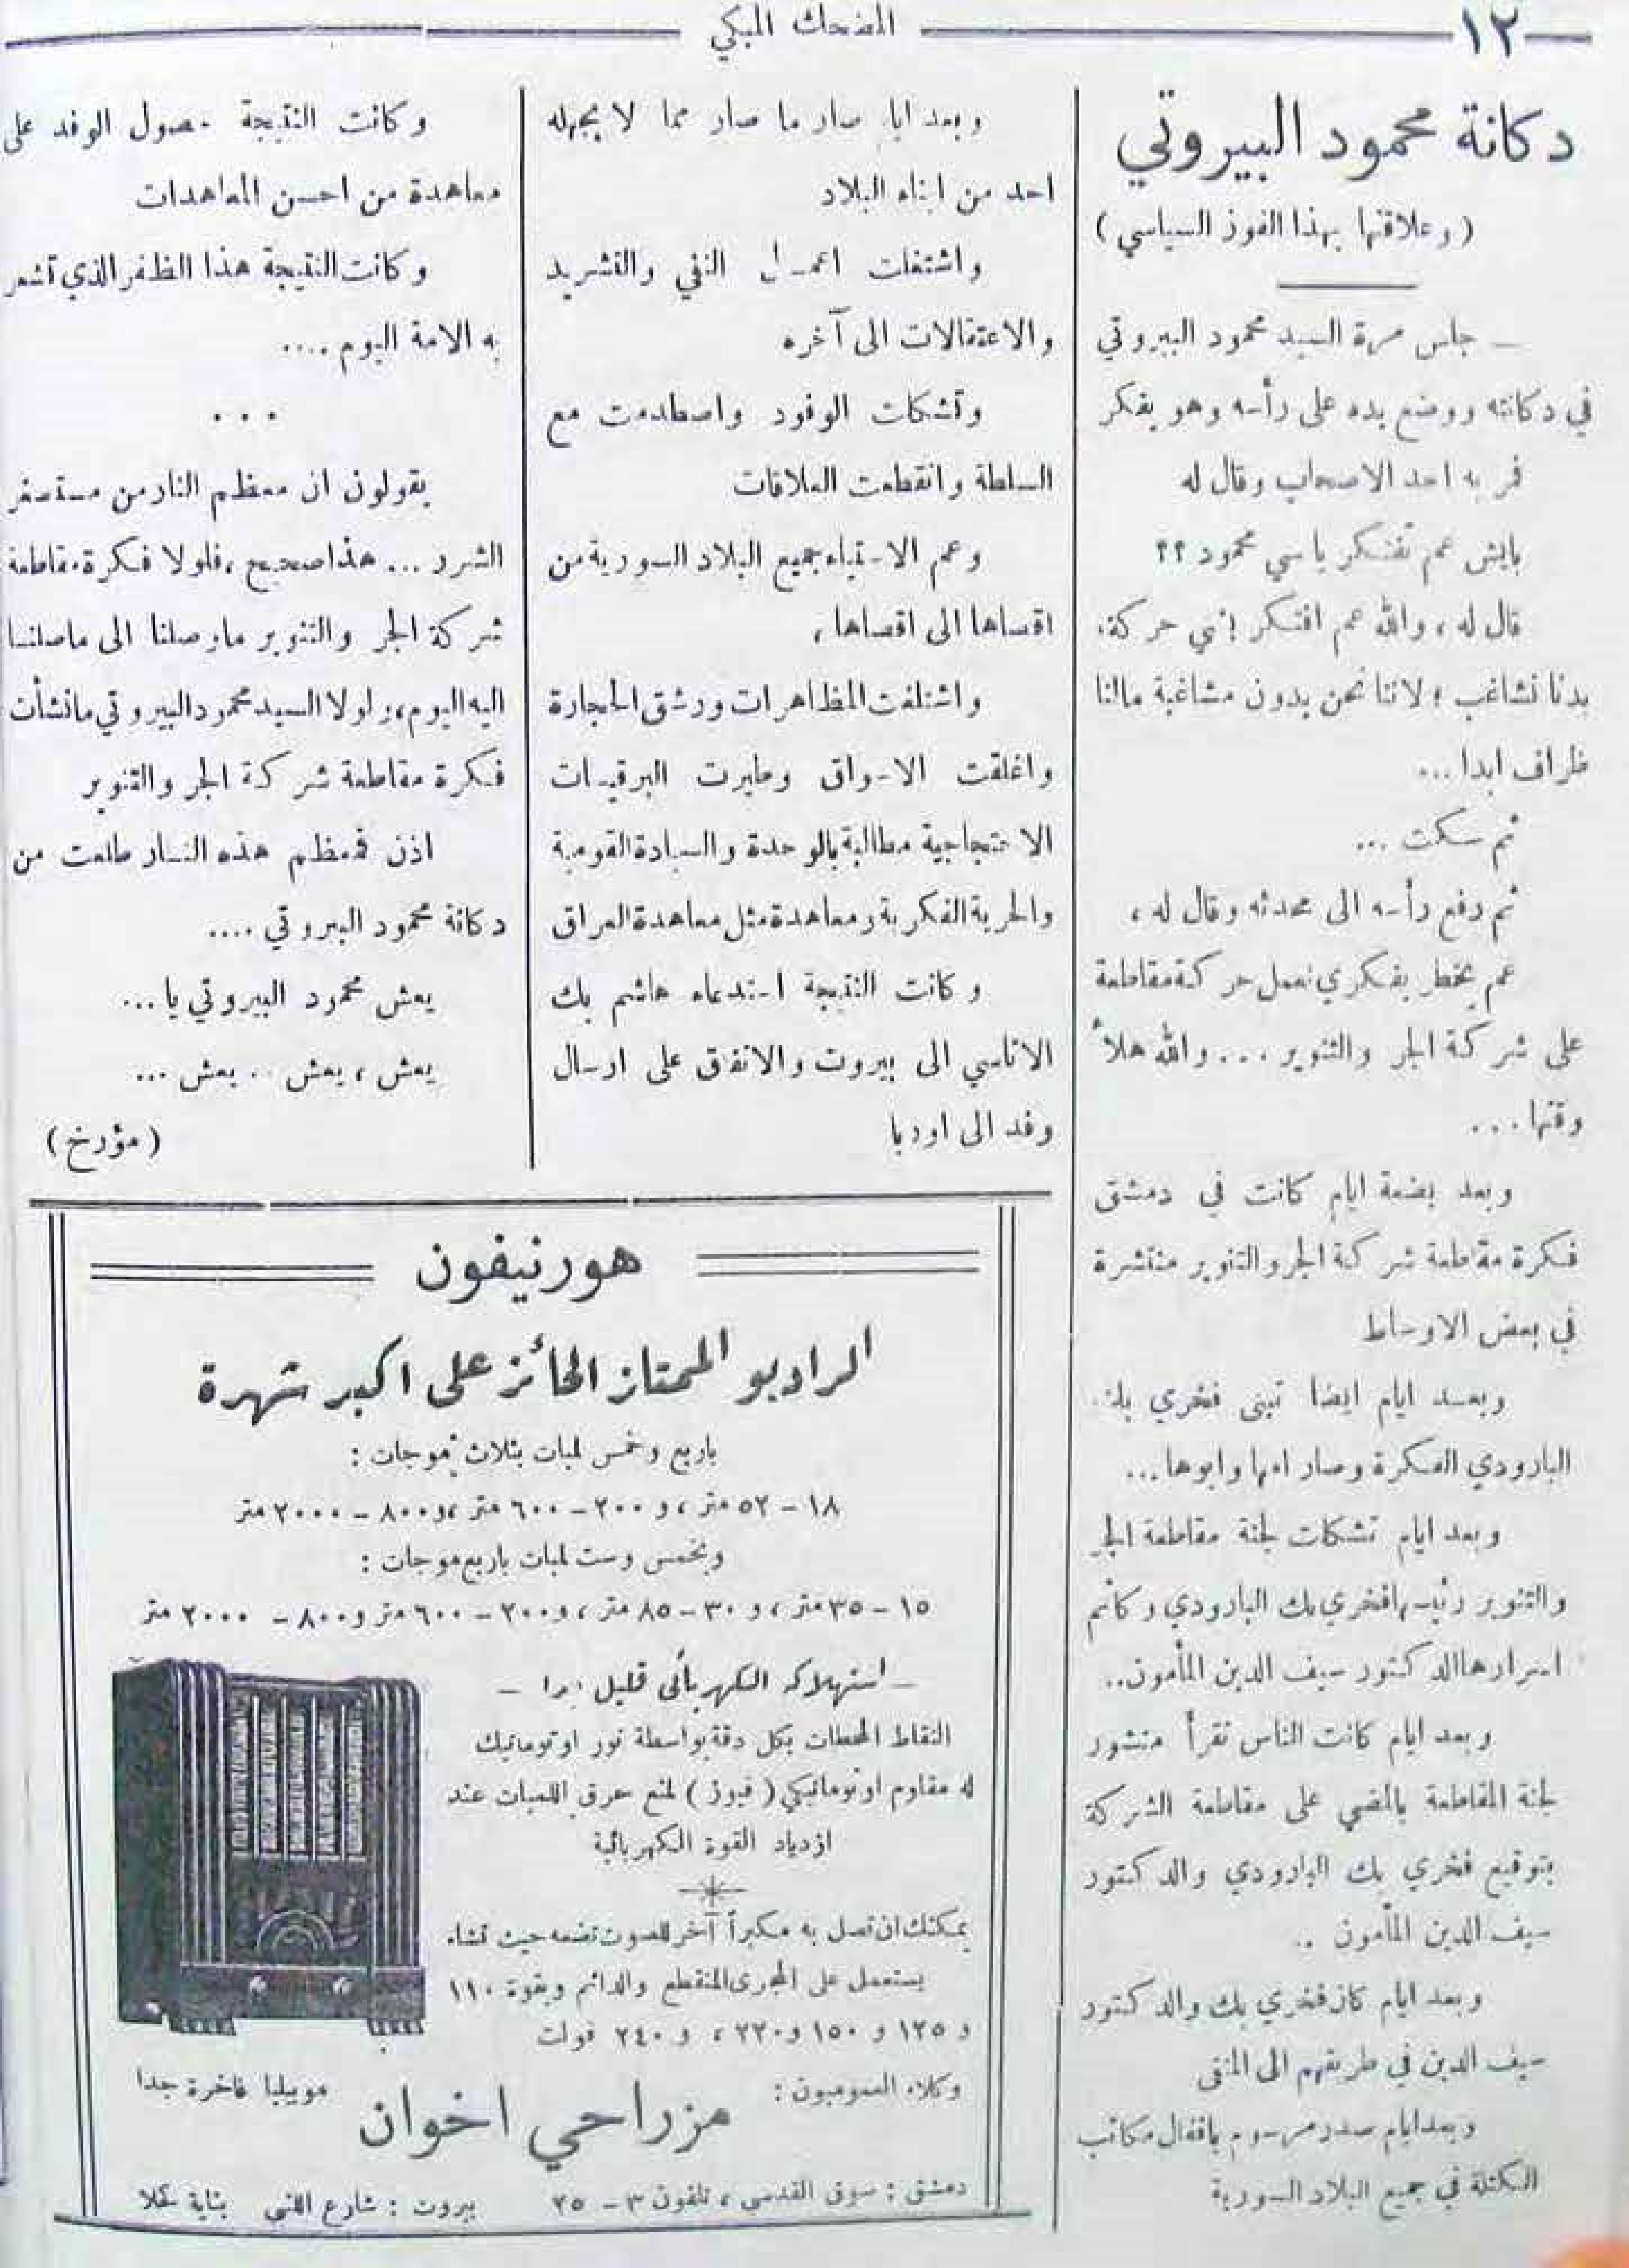 ١٢
المضحك المبكي
دكانة محمود البيروتي
(وعلاقتها بهذا الفوز السياسي)
— جلس مرة السيد محمود البيروتي
في دكانته ووضع يده على رأسه وهو يفكر
فمر به احد الاصحاب وقال له
بايش عم تفتكر يا سي محمود ؟؟
قال له ، والله عم افتكر باي حركة،
بدنا نشاغب ؛ لاننا نحن بدون مشاغبة مالنا
ظراف ابدا ...
ثم سكت ...
ثم رفع رأسه الى محدثه وقال له ،
عم يخطر بفكري نعمل حركة مقاطعة
على شركة الجر والتنوير ... والله هلأ
وقتها ...
وبعد بضعة ايام كانت في دمشق
فكرة مقاطعة شركة الجر والتنوير منتشرة
في بعض الاوساط
وبعد ايام ايضا تبنى فخري بك
البارودي الفكرة وصار امها وابوها ...
وبعد ايام تشكلت لجنة مقاطعة الجر
والتنوير رئيسها فخري بك البارودي وكاتم
اسرارها الدكتور سيف الدين المأمون ..
وبعد ايام كانت الناس تقرأ منشور
لجنة المقاطعة بالمضي على مقاطعة الشركة
بتوقيع فخري بك البارودي والدكتور
سيف الدين المأمون ..
وبعد ايام كان فخري بك والدكتور
سيف الدين في طريقهم الى المنفى
وبعد ايام صدر مرسوم باقفال مكاتب
الكتلة في جميع البلاد السورية
وبعد ايام صار ما صار مما لا يجهله
احد من ابناء البلاد
واشتغلت اعمال النفي والتشريد
والاعتقالات الى آخره
وتشكلت الوفود واصطدمت مع
السلطة وانقطعت العلاقات
وعم الاستياء جميع البلاد السورية من
اقصاها الى اقصاها ،
واشتغلت المظاهرات ورشق الحجارة
واغلقت الاسواق وطيرت البرقيات
الاحتجاجية مطالبة بالوحدة والسيادة القومية
والحرية الفكرية ومعاهدة مثل معاهدة العراق
وكانت النتيجة استدعاء هاشم بك
الاتاسي الى بيروت والاتفاق على ارسال
وفد الى اوربا
وكانت النتيجة حصول الوفد على
معاهدة من احسن المعاهدات
وكانت النتيجة هذا الظفر الذي تشعر
به الامة اليوم ....
٠ ٠ ٠
يقولون ان معظم النار من مستصغر
الشرر ... هذا صحيح ، فلولا فكرة مقاطعة
شركة الجر والتنوير ما وصلنا الى ما صلنا
اليه اليوم ، ولولا السيد محمود البيروتي ما نشأت
فكرة مقاطعة شركة الجر والتنوير
اذن فمعظم هذه النار طلعت من
دكانة محمود البيروتي ....
يعش محمود البيروتي يا ...
يعش ، يعش .. يعش ...
(مؤرخ)
هورنيفون
الراديو الممتاز الحائز على اكبر شهرة
باربع وخمس لمبات بثلاث موجات :
١٨ - ٥٢ متر ، و ٢٠٠ - ٦٠٠ متر ، و ٨٠٠ - ٢٠٠٠ متر
وبخمس وست لمبات باربع موجات :
١٥ - ٣٥ متر ، و ٣٠ - ٨٥ متر ، و ٢٠٠ - ٦٠٠ متر و ٨٠٠ - ٢٠٠٠ متر
— استهلاكه الكهربائي قليل جدا —
التقاط المحطات بكل دقة بواسطة نور اوتوماتيك
له مقاوم اوتوماتيكي (فيوز) لمنع حرق اللمبات عند
ازدياد القوة الكهربائية
يمكنك ان تصل به مكبراً آخر للصوت تضعه حيث تشاء
يستعمل على المجرى المنقطع والدائم وبقوة ١١٠
و ١٢٥ و ١٥٠ و ٢٢٠ ، و ٢٤٠ فولت
موبيليا فاخرة جدا
وكلاء العموميون :
مزراحي اخوان
دمشق : سوق القدسي ، تلفون ٣ - ٢٥ بيروت : شارع اللنبي بناية كحلا